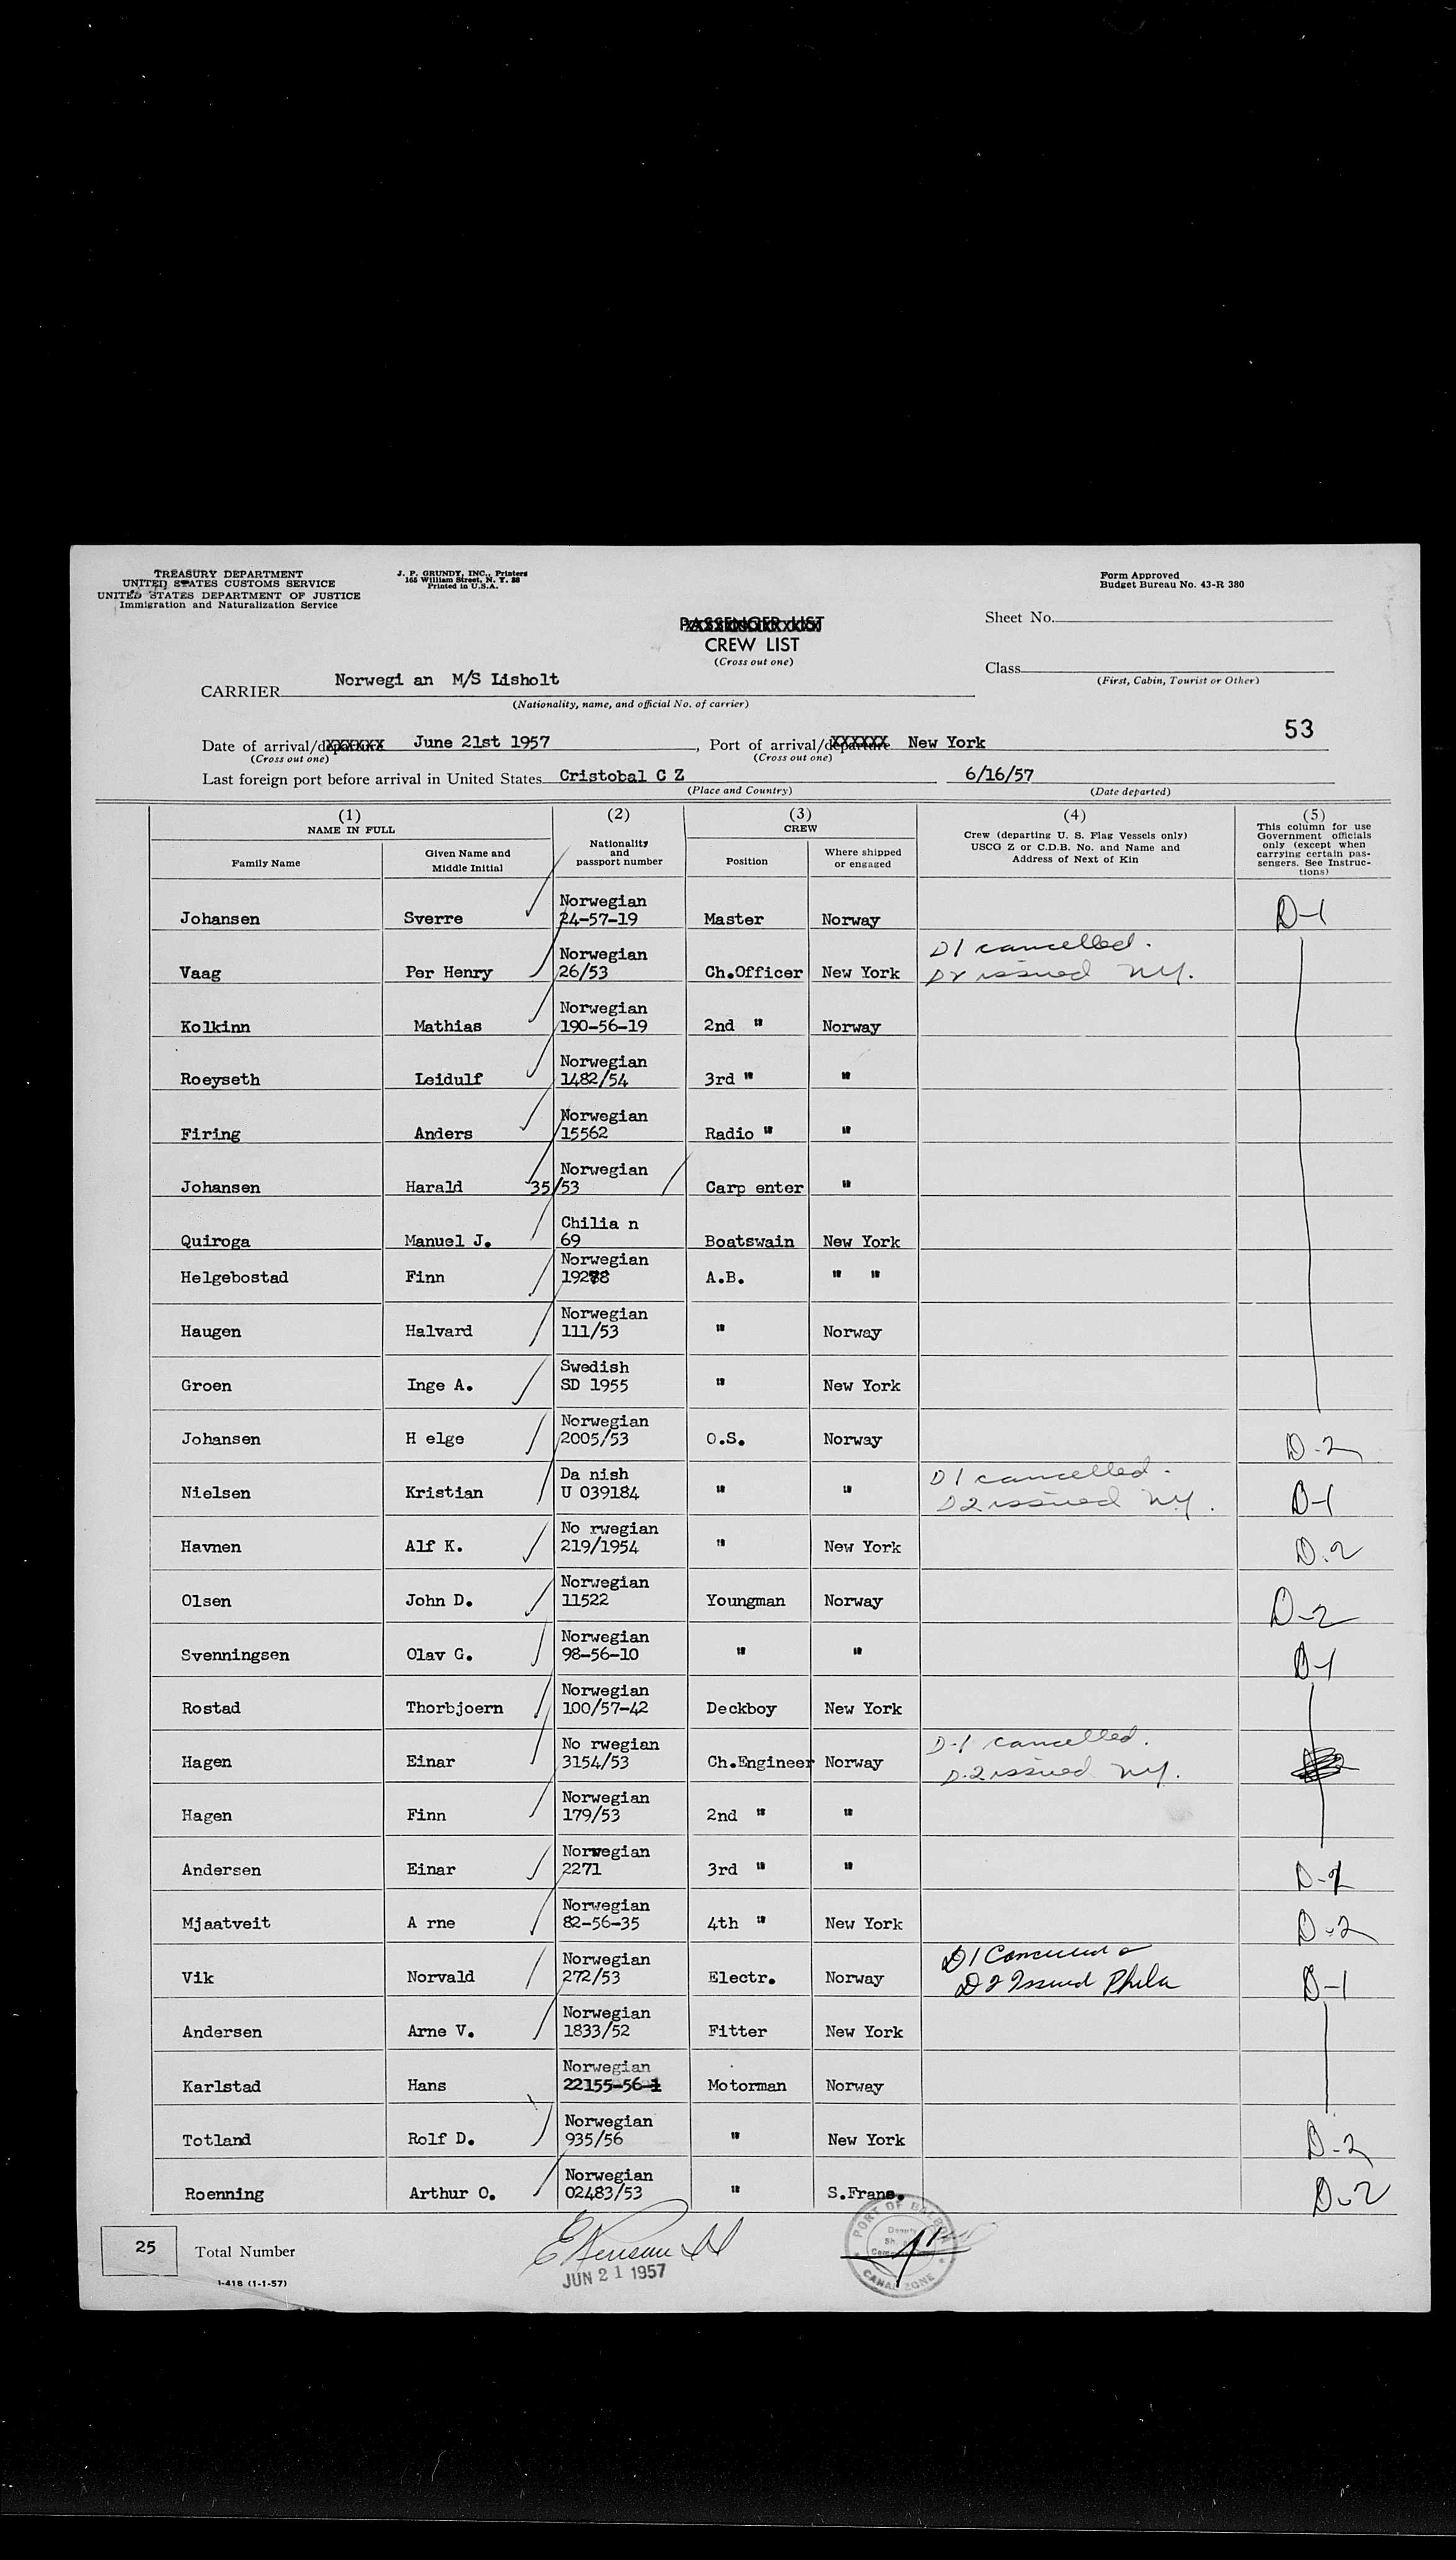 TREASURY DEPARTMENT
UNITED STATES CUSTOMS SERVICE
UNITED STATES DEPARTMENT OF JUSTICE
Immigration and Naturalization Service
J. P. GRUNDY, INC., Printers
165 William Street, N. Y. 38
Printed in U.S.A.
Form Approved
Budget Bureau No. 43-R 380
PASSENGER LIST
CREW LIST
(Cross out one)
Sheet No.
Class
(First, Cabin, Tourist or Other)
CARRIER Norwegi an M/S Lisholt
(Nationality, name, and official No. of carrier)
53
Date of arrival/departure June 21st 1957, Port of arrival/departure New York
(Cross out one) (Cross out one)
Last foreign port before arrival in United States Cristobal C Z 6/16/57
(Place and Country) (Date departed)
(1) (2) (3) (4) (5)
NAME IN FULL
Family Name
Given Name and Middle Initial
Nationality and passport number
CREW
Position
Where shipped or engaged
Crew (departing U. S. Flag Vessels only)
USCG Z or C.D.B. No. and Name and
Address of Next of Kin
This column for use
Government officials
only (except when
carrying certain pas-
sengers. See Instruc-
tions)
Johansen Sverre Norwegian 24-57-19 Master Norway D-1
Vaag Per Henry Norwegian 26/53 Ch.Officer New York D1 cancelled. D2 issued NY.
Kolkinn Mathias Norwegian 190-56-19 2nd " Norway
Roeyseth Leidulf Norwegian 1482/54 3rd " "
Firing Anders Norwegian 15562 Radio " "
Johansen Harald Norwegian 35/53 Carp enter "
Quiroga Manuel J. Chilia n 69 Boatswain New York
Helgebostad Finn Norwegian 19278 A.B. " "
Haugen Halvard Norwegian 111/53 " Norway
Groen Inge A. Swedish SD 1955 " New York
Johansen H elge Norwegian 2005/53 O.S. Norway D-2
Nielsen Kristian Da nish U 039184 " " D1 cancelled. D2 issued NY. D-1
Havnen Alf K. No rwegian 219/1954 " New York D.2
Olsen John D. Norwegian 11522 Youngman Norway D-2
Svenningsen Olav G. Norwegian 98-56-10 " " D-1
Rostad Thorbjoern Norwegian 100/57-42 Deckboy New York
Hagen Einar No rwegian 3154/53 Ch.Engineer Norway D-1 cancelled. D.2 issued NY.
Hagen Finn Norwegian 179/53 2nd " "
Andersen Einar Norwegian 2271 3rd " "
Mjaatveit A rne Norwegian 82-56-35 4th " New York D-2
Vik Norvald Norwegian 272/53 Electr. Norway D2 Issued Phila D-1
Andersen Arne V. Norwegian 1833/52 Fitter New York
Karlstad Hans Norwegian 22155-56-1 Motorman Norway
Totland Rolf D. Norwegian 935/56 " New York D-2
Roenning Arthur O. Norwegian 02483/53 " S.Frans. D-2
25 Total Number
I-418 (1-1-57)
JUN 21 1957
PORT OF BALBOA
CANAL ZONE